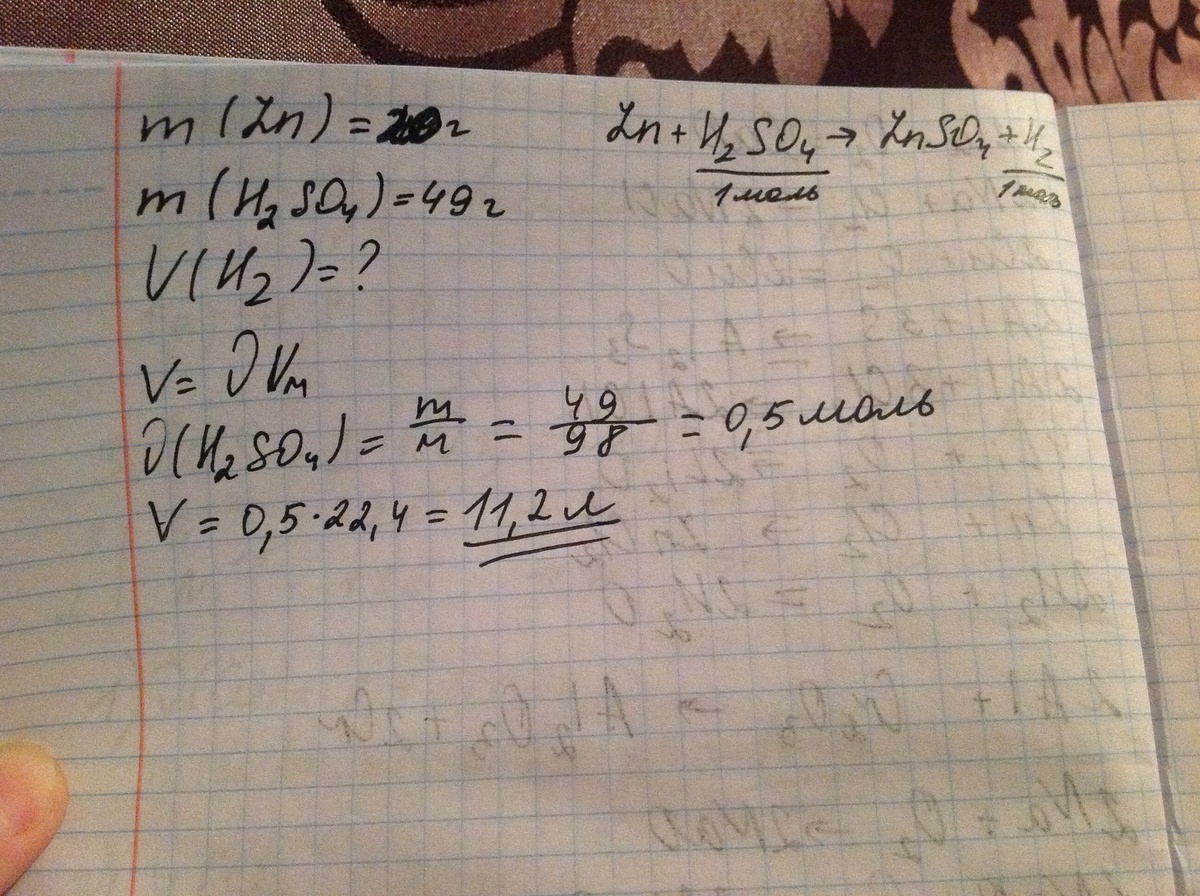 m (Zn) = 20 г
Zn + H₂SO₄ → ZnSO₄ + H₂
1 моль 1 моль
m (H₂SO₄) = 49 г
V (H₂) = ?
V = ϑVм
ϑ(H₂SO₄) = m/м = 49/98 = 0,5 моль
V = 0,5 · 22,4 = 11,2 л